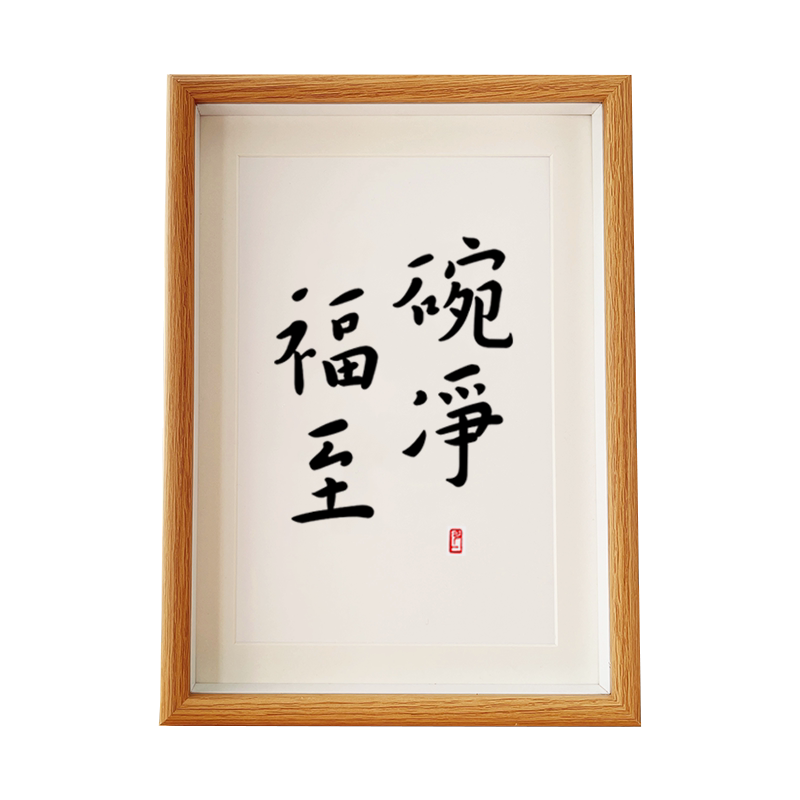 碗淨
福至